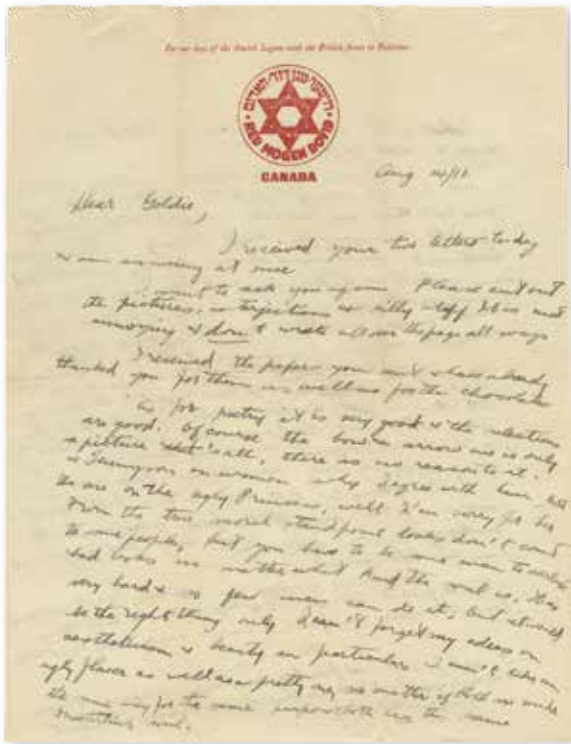 For our boys of the Jewish Legion with the British Army in Palestine
RED MOGEN DOVID
CANADA
Aug 14/18
Dear Goldie,
I received your two letters to-day
& am answering at once
I want to ask you again. Please cut out
the pictures, interjections & silly stuff. It is most
annoying & don't write all over the page all ways
I received the papers you sent & have already
thanked you for them as well as for the chocolate
As for poetry it is very good & the selections
are good. Of course the bow & arrow one is only
a picture that's all, there is no reason to it.
Tennyson on women why I agree with him, but
the one on the ugly Princess, well I'm sorry for her
From the true moral standpoint looks don't count
to some people, but you have to be some man to
bad looks no matter what And the soul is. It is
very hard & so few men can do it, but it would
be the right thing only I can't forget my ideas on
aestheticism & beauty in particular I can't like an
ugly flower as well as a pretty one, no matter if God made
the one for the same purpose both the same